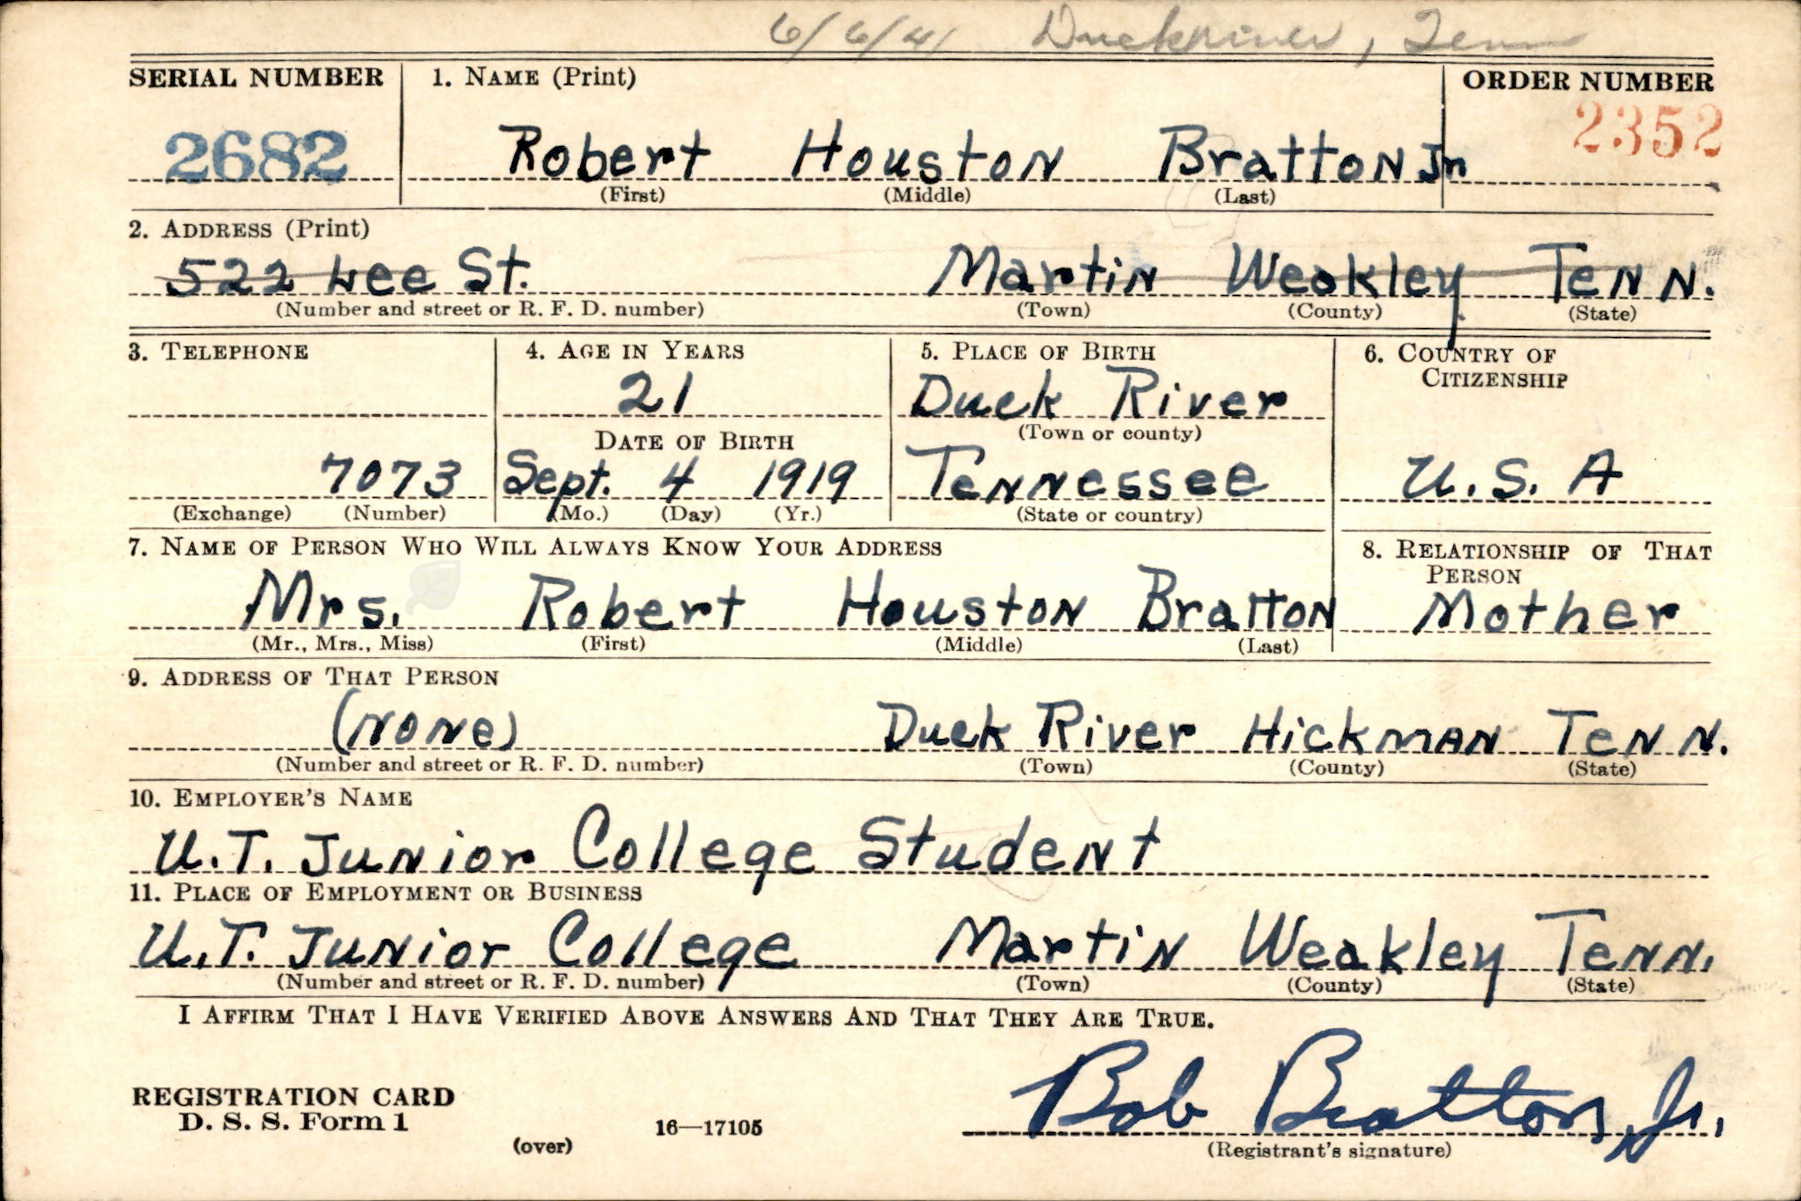 6/6/41 Duckriver, Tenn
SERIAL NUMBER 1. NAME (Print) ORDER NUMBER
2682 Robert Houston Bratton Jr 2352
(First) (Middle) (Last)
2. ADDRESS (Print)
522 Lee St. Martin Weakley Tenn.
(Number and street or R. F. D. number) (Town) (County) (State)
3. TELEPHONE 4. AGE IN YEARS 5. PLACE OF BIRTH 6. COUNTRY OF CITIZENSHIP
21 Duck River
DATE OF BIRTH (Town or county)
7073 Sept. 4 1919 Tennessee U.S. A
(Exchange) (Number) (Mo.) (Day) (Yr.) (State or country)
7. NAME OF PERSON WHO WILL ALWAYS KNOW YOUR ADDRESS 8. RELATIONSHIP OF THAT PERSON
Mrs. Robert Houston Bratton Mother
(Mr., Mrs., Miss) (First) (Middle) (Last)
9. ADDRESS OF THAT PERSON
(none) Duck River Hickman Tenn.
(Number and street or R. F. D. number) (Town) (County) (State)
10. EMPLOYER'S NAME
U.T. Junior College Student
11. PLACE OF EMPLOYMENT OR BUSINESS
U.T. Junior College Martin Weakley Tenn.
(Number and street or R. F. D. number) (Town) (County) (State)
I AFFIRM THAT I HAVE VERIFIED ABOVE ANSWERS AND THAT THEY ARE TRUE.
REGISTRATION CARD Bob Bratton, Jr.
D. S. S. Form 1 16—17105
(over) (Registrant's signature)